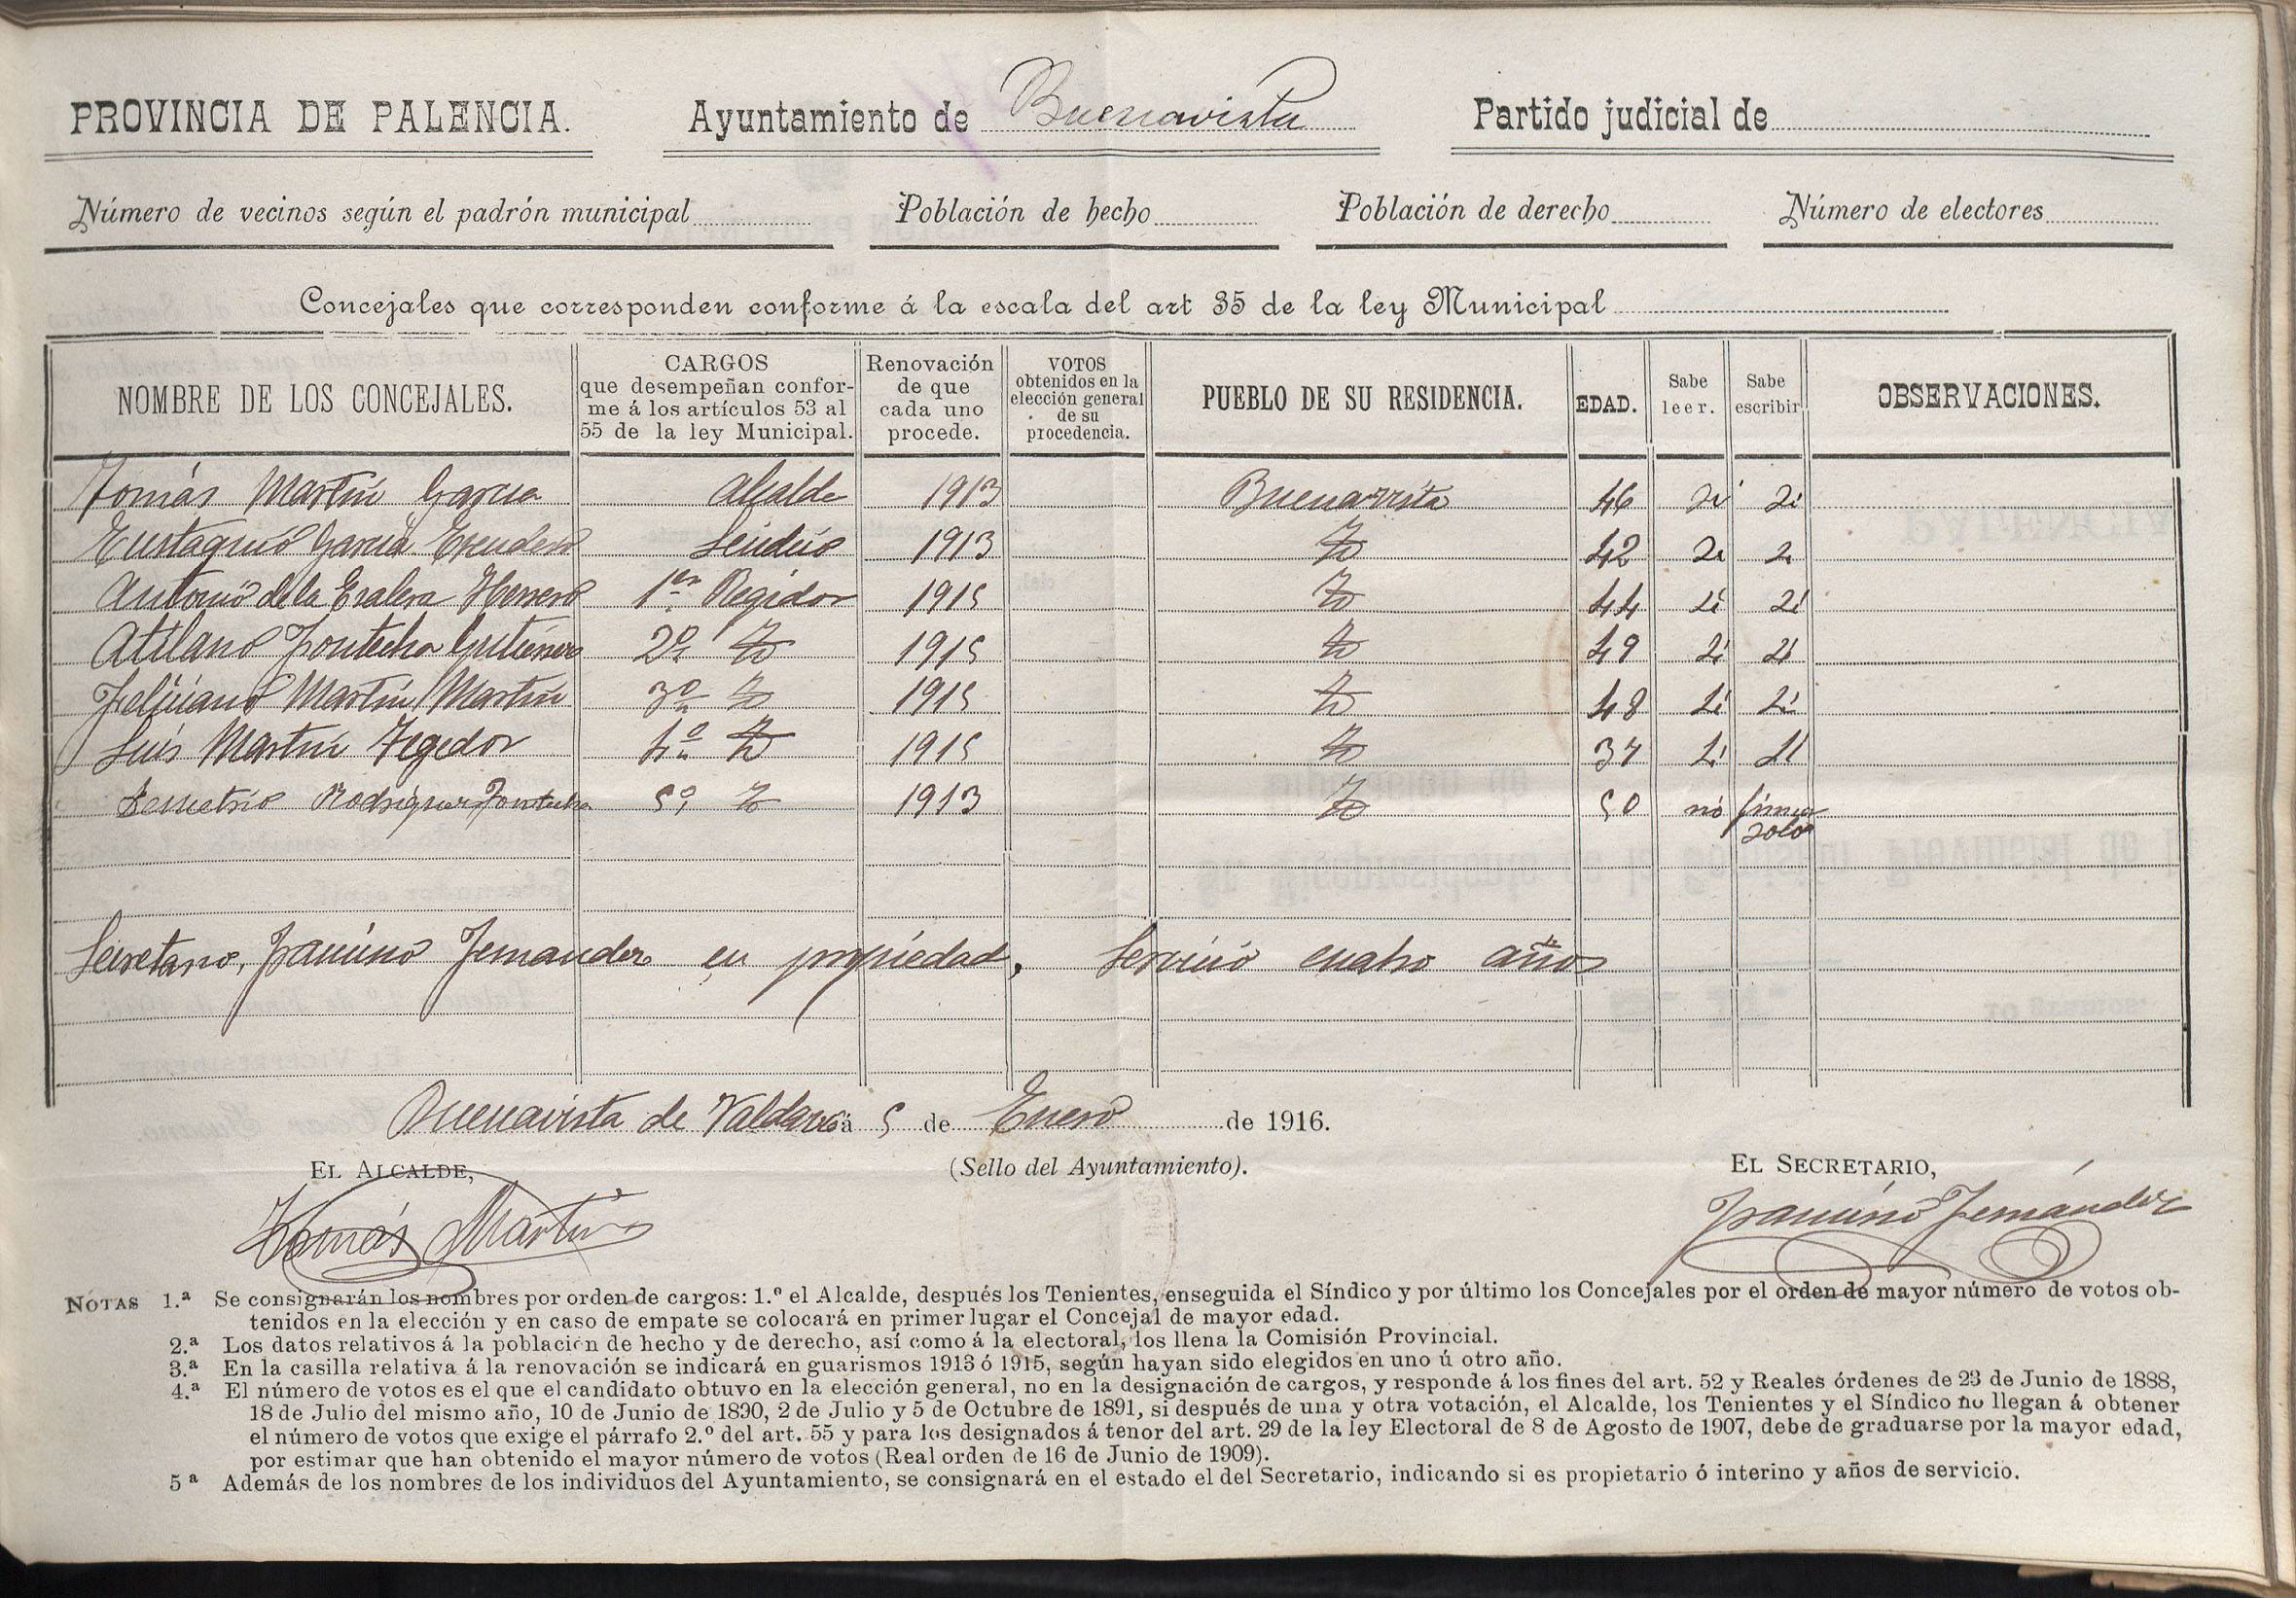 PROVINCIA DE PALENCIA. Ayuntamiento de Buenavista Partido judicial de
Número de vecinos según el padrón municipal Población de hecho Población de derecho Número de electores
Concejales que corresponden conforme á la escala del art 35 de la ley Municipal
NOMBRE DE LOS CONCEJALES. CARGOS que desempeñan confor- me á los artículos 53 al 55 de la ley Municipal. Renovación de que cada uno procede. VOTOS obtenidos en la elección general de su procedencia. PUEBLO DE SU RESIDENCIA. EDAD. Sabe leer. Sabe escribir OBSERVACIONES.
Tomás Martín Garcia Alcalde 1913 Buenavista 46 si si
Eustaquio Garcia Síndico 1913 Id 42 si si
Antonio de la Escalera Herrero 1er Regidor 1915 Id 44 si si
Atilano Fontecha Gutierrez 2º Id 1915 Id 49 si si
Feliciano Martín Martín 3º Id 1915 Id 48 si si
Luis Martín Tegedor 4º Id 1915 Id 37 si si
Demetrio Rodriguez Fontecha 5º Id 1913 Id 50 no firmar solo
Secretario, Francisco Fernandez en propiedad, Servicio cuatro años
Buenavista de Valdavia á 5 de Enero de 1916.
EL ALCALDE, (Sello del Ayuntamiento). EL SECRETARIO,
Tomás Martín Francisco Fernández
NOTAS 1.ª Se consignarán los nombres por orden de cargos: 1.º el Alcalde, después los Tenientes, enseguida el Síndico y por último los Concejales por el orden de mayor número de votos ob-
tenidos en la elección y en caso de empate se colocará en primer lugar el Concejal de mayor edad.
2.ª Los datos relativos á la población de hecho y de derecho, así como á la electoral, los llena la Comisión Provincial.
3.ª En la casilla relativa á la renovación se indicará en guarismos 1913 ó 1915, según hayan sido elegidos en uno ú otro año.
4.ª El número de votos es el que el candidato obtuvo en la elección general, no en la designación de cargos, y responde á los fines del art. 52 y Reales órdenes de 23 de Junio de 1888,
18 de Julio del mismo año, 10 de Junio de 1890, 2 de Julio y 5 de Octubre de 1891, si después de una y otra votación, el Alcalde, los Tenientes y el Síndico no llegan á obtener
el número de votos que exige el párrafo 2.º del art. 55 y para los designados á tenor del art. 29 de la ley Electoral de 8 de Agosto de 1907, debe de graduarse por la mayor edad,
por estimar que han obtenido el mayor número de votos (Real orden de 16 de Junio de 1909).
5ª Además de los nombres de los individuos del Ayuntamiento, se consignará en el estado el del Secretario, indicando si es propietario ó interino y años de servicio.